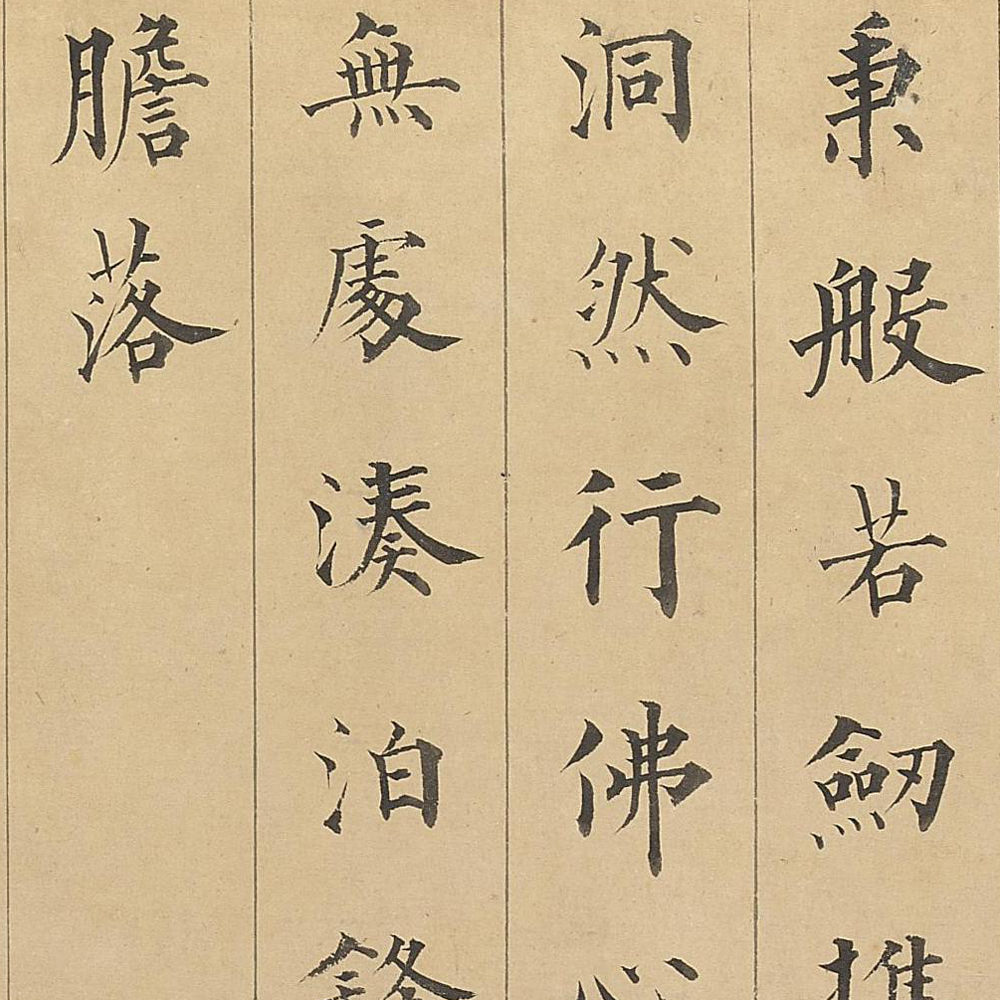 秉般若劒推
洞然行佛心
無處湊泊鋒
膽落